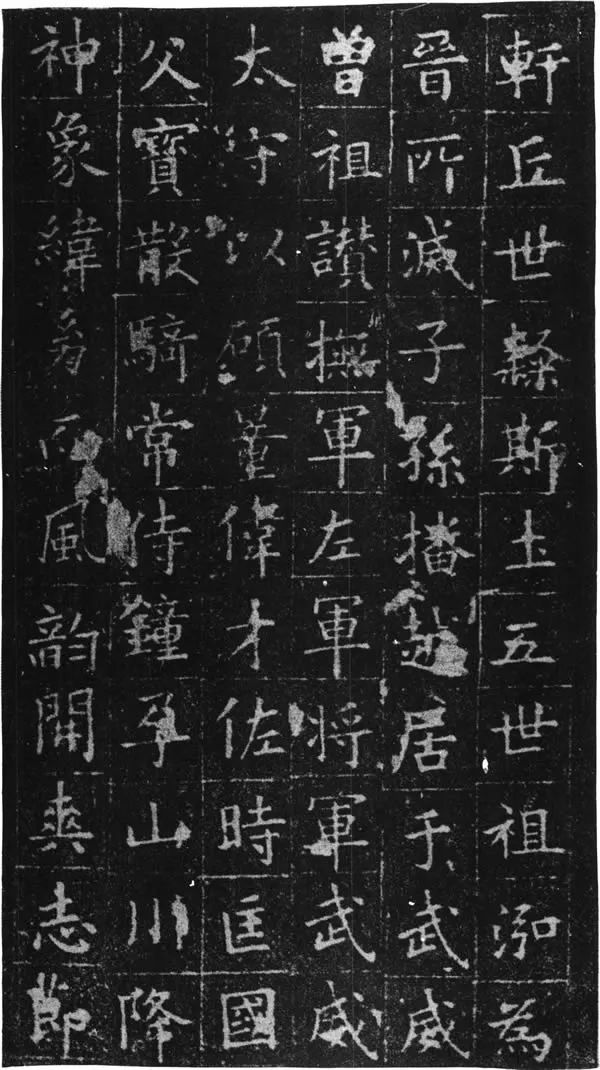 軒丘世隸斯土五世祖泓為
晉所滅子孫播越居于武威
曾祖讃撫軍左軍將軍武威
太守以碩量偉才佐時匡國
父寶散騎常侍鐘孕山川降
神象緯著而風韵開爽志節